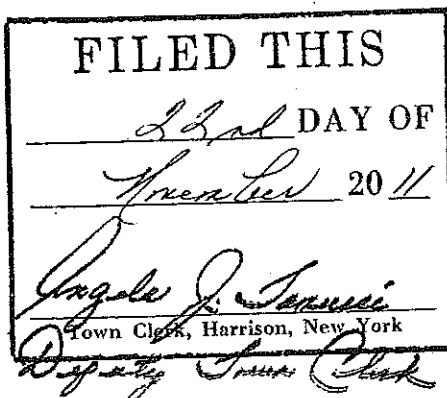 FILED THIS
22nd DAY OF
November 20 11
Angela J.
Town Clerk, Harrison, New York
Deputy Town Clerk